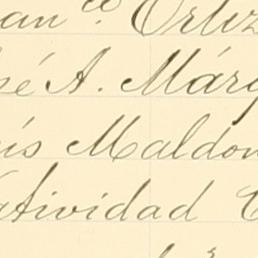 an co Ortiz
sé A. Márq
uis Maldon
atividad C